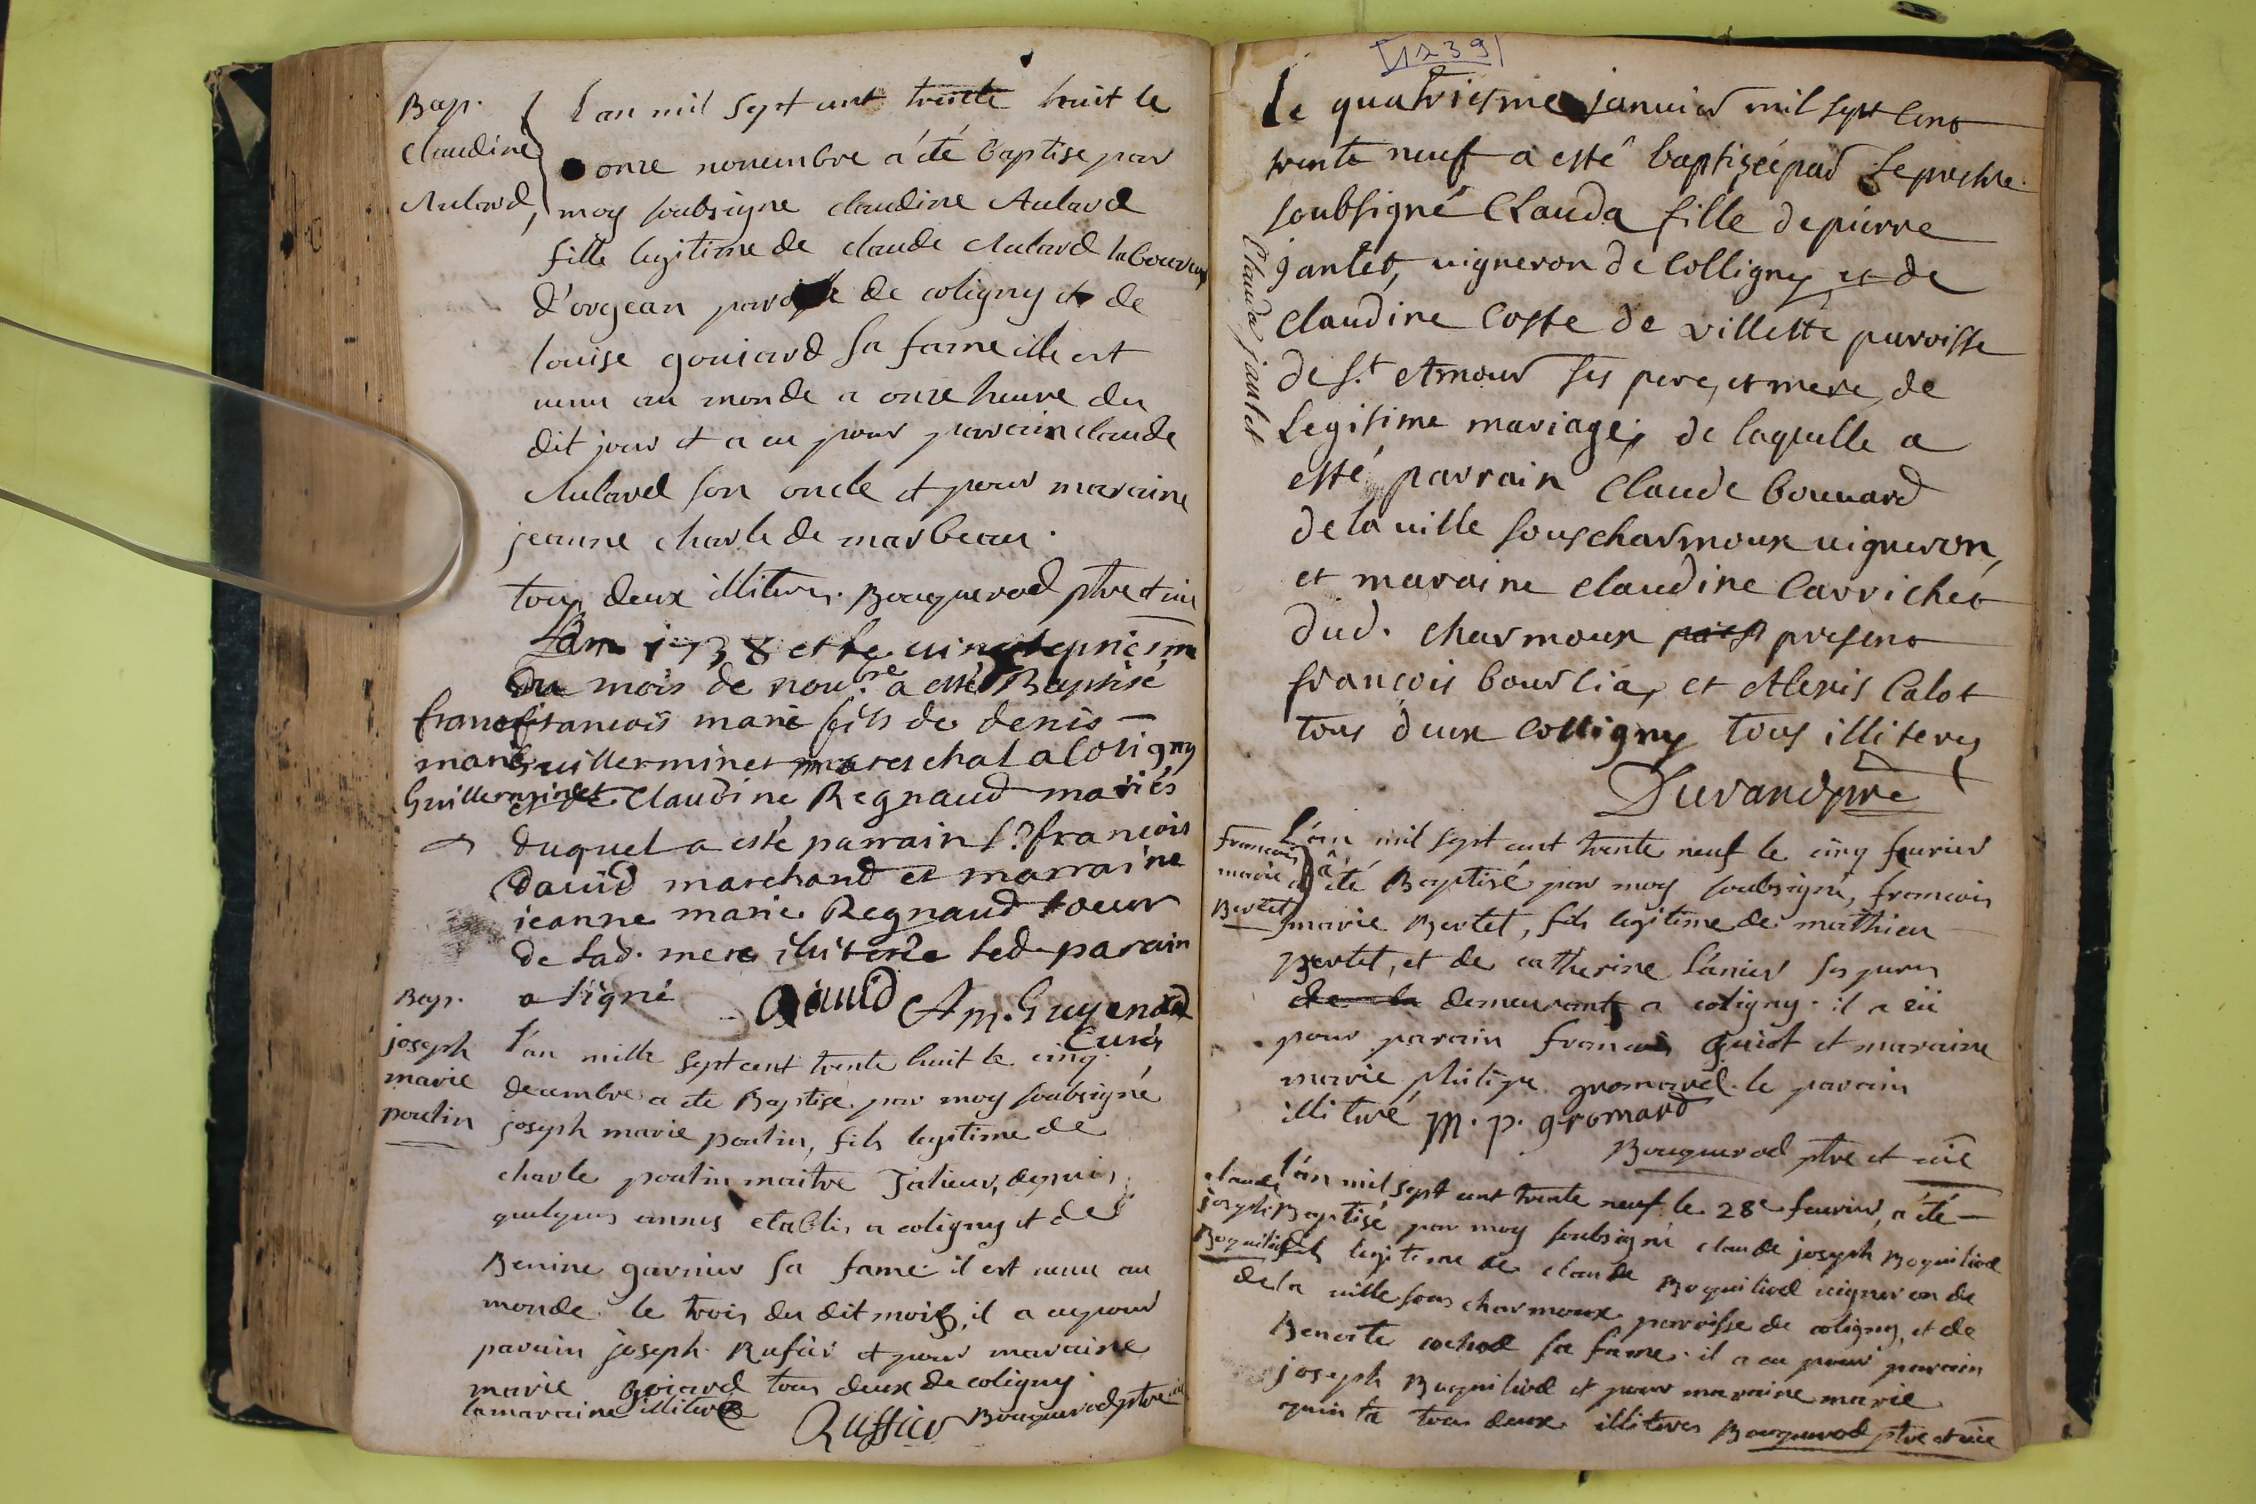 Bap.
claudine
Aulard,
L'an mil sept cent trente huit le
onze novembre a été baptise par
moy soubsigne claudine Aulard
fille legitime de claude Aulard laboureur
d'orgean paroisse de coligny et de
louise goujard sa fame elle est
venu au monde a onze heure du
dit jour et a eu pour parrain claude
Aulard son oncle et pour maraine
jeanne charle de marbeau.
tous deux illiteres. Bouquerod ptre et vic
Lan 1738 et le vingtseptiesme
Du mois de nou.bre a esté Baptisé
francois marie fils de denis
Guillerminet mareschal a Coligny
et de Claudine Regnaud mariés
duquel a esté parrain S.r francois
David marchand et marraine
ieanne marie Regnaud soeur
de lad. mere illiterée led. parain
a signé
franc
marie
Guillerminet
David Am. Guyenard
Curé
Bap.
joseph
marie
poulin
l'an mille sept cent trente huit le cinq
decembre a ete Baptise par moy soubsigné
joseph marie poulin, fils legitime de
charle poulin maitre Talieur, depuis
quelques annes etablis a coligny et de
Benine garnier sa fame il est venu au
monde le trois du dit mois, il a eu pour
parain joseph Rufier et pour maraine
marie Goiard tous deux de coligny
la maraine illitere
Ruffier Bouquerod ptre vic
1239
Le quatriesme januier mil sept cent
trente neuf a esté baptisée par le prestre
soubsigné Clauda fille de pierre
jantet, uigneron de Colligny et de
claudine Coste de villette paroisse
de S.t Amour ses pere, et mere, de
legitime mariage; de laquelle a
esté parrain Claude bouuard
de la uille sous charmoux uigneron,
et maraine claudine Carrichet
dud. charmoux present
françois bourlia, et Alexis Calot
tous deux Colligny tous illiteres
Durand pre
Clauda jantet
francois
marie
Bertet
L'an mil sept cent trente neuf le cinq feurier
a été Baptisé par moy soubsigné, francois
marie Bertet, fils legitime de mathieu
Bertet, et de catherine l'anier ses peres
de la demeurants a coligny. il a eü
pour parain francois Guiot et maraine
marie philipe gromard. le parain
illiteré M. p. gromard
Bouquerod ptre et vic
claude
joseph
Boquillod
l'an mil sept cent trente neuf le 28e feurier, a été
Baptisé par moy soubsigné claude joseph Boquillod
fils legitime de claude Boquillod uigneron de
de la uille sous charmoux paroisse de coligny, et de
Benoite cochod sa fame. il a eu pour parain
joseph Boquillod et pour maraine marie
quinta tous deux illiteres Bouquerod ptre et vic